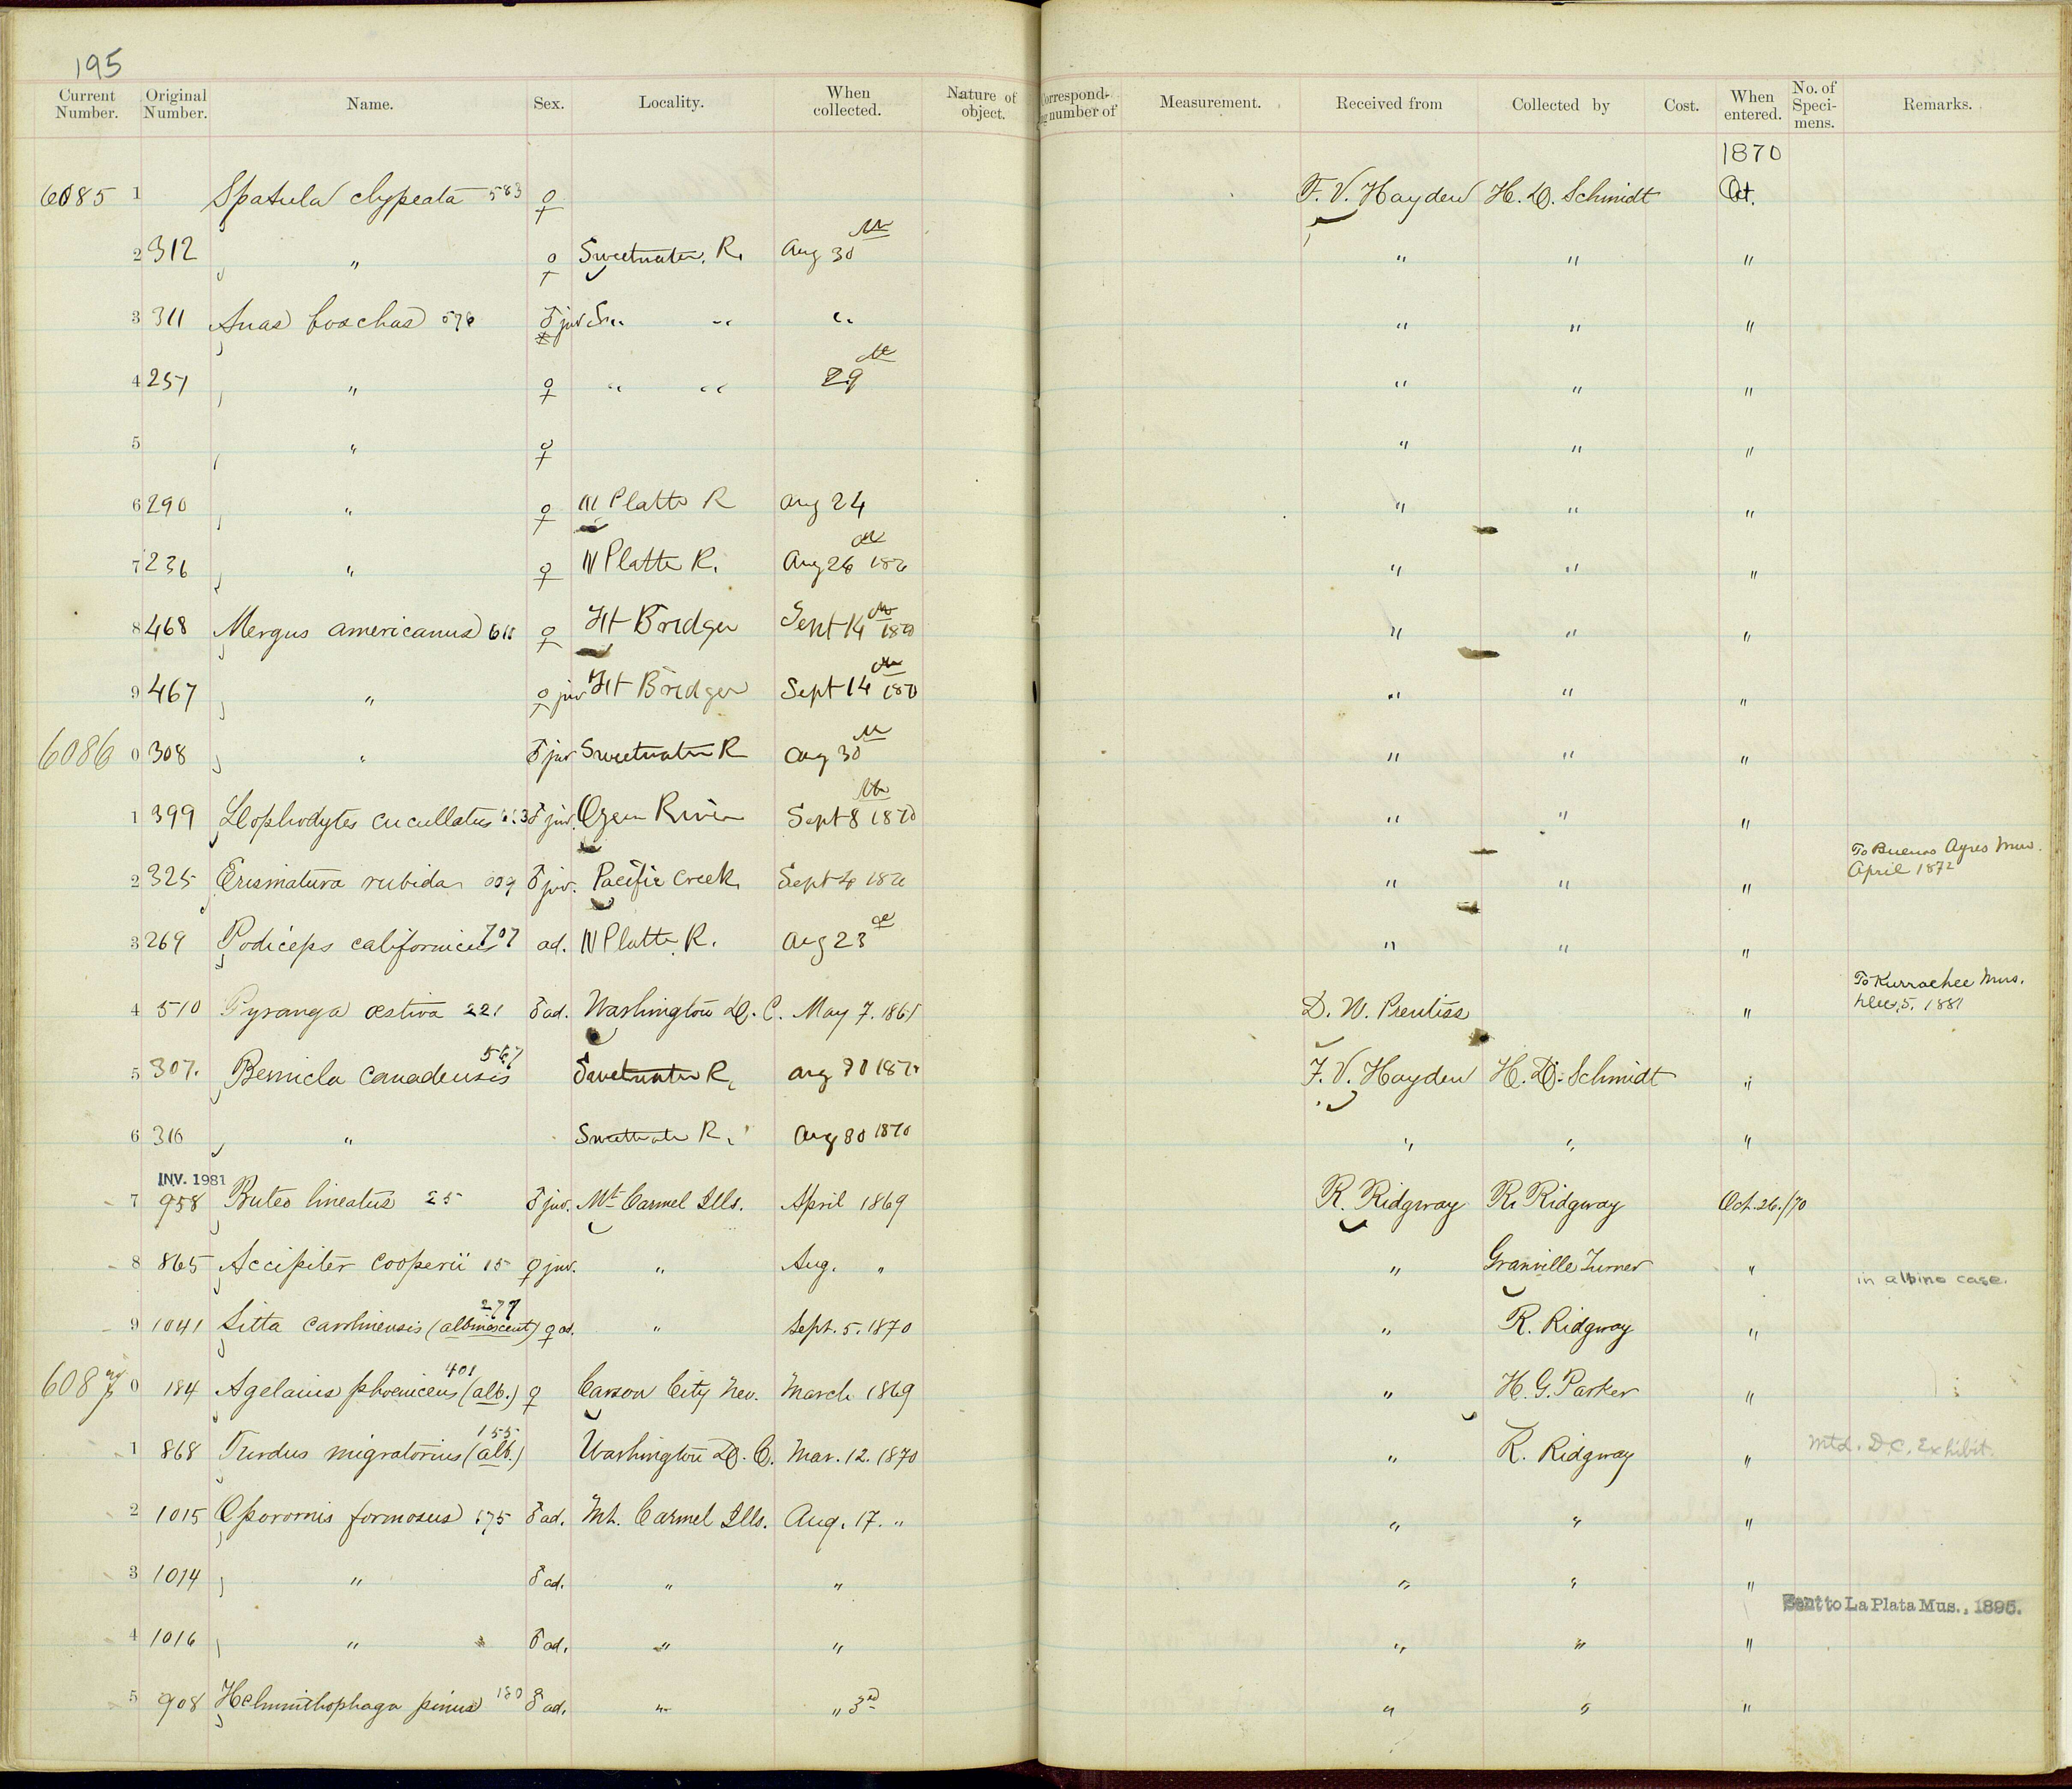 195
Current Number. Original Number. Name. Sex. Locality. When collected. Nature of object. Correspond-ing number of Measurement. Received from Collected by Cost. When entered. No. of Speci-mens. Remarks.
1870
6085 1 Spatula clypeata 583 ♀ F. V. Hayden H. D. Schmidt Oct.
2 312 " ♀ Sweetwater R. Aug 30 " " "
3 311 Anas boschas 576 ♂ juv Sw " " " " "
4 257 " ♀ " " 29 " " "
5 " ♀ " " "
6 290 " ♀ N Platte R Aug 24 " " "
7 236 " ♀ N Platte R. Aug 26 1870 " " "
8 468 Mergus americanus 611 ♀ Ft Bridger Sept 14 1870 " " "
9 467 " ♀ juv Ft Bridger Sept 14 1870 " " "
6086 0 308 " ♂ juv Sweetwater R Aug 30 " " "
1 399 Lophodytes cucullatus 613 ♂ juv. Green River Sept 8 1870 " " "
2 325 Erismatura rubida 609 ♂ juv. Pacific Creek Sept 4 1870 " " " To Buenos Ayres Mus. April 1872
3 269 Podiceps californicus 707 ad. N Platte R. Aug 23 " " "
4 510 Pyranga æstiva 221 ♂ ad. Washington D. C. May 7. 1861 D. W. Prentiss " To Kurrachee Mus. Dec. 5. 1881
5 307. Bernicla canadensis 567 Sweetwater R. Aug 30 1870 F. V. Hayden H. D. Schmidt "
6 316 " Sweetwater R. Aug 30 1870 " " "
INV. 1981
7 958 Buteo lineatus 25 ♂ juv. Mt. Carmel Ills. April 1869 R. Ridgway R. Ridgway Oct. 26./70
8 865 Accipiter cooperii 15 ♀ juv. " Aug. " " Granville Turner "
in albino case.
9 1041 Sitta carolinensis (albinescent) 277 ♀ ad. " Sept. 5. 1870 " R. Ridgway "
6087 0 184 Agelaius phoeniceus (alb.) 401 ♀ Carson City Nev. March 1869 " H. G. Parker "
1 868 Turdus migratorius (alb.) 155 Washington D. C. Mar. 12. 1870 " R. Ridgway " Mtd. D.C. Exhibit.
2 1015 Oporornis formosus 175 ♂ ad. Mt. Carmel Ills. Aug. 17. " " " "
3 1014 " ♂ ad. " " " " "
Sent to La Plata Mus., 1895.
4 1016 " ♂ ad. " " " " "
5 908 Helminthophaga pinus 180 ♂ ad. " " 3d " " "